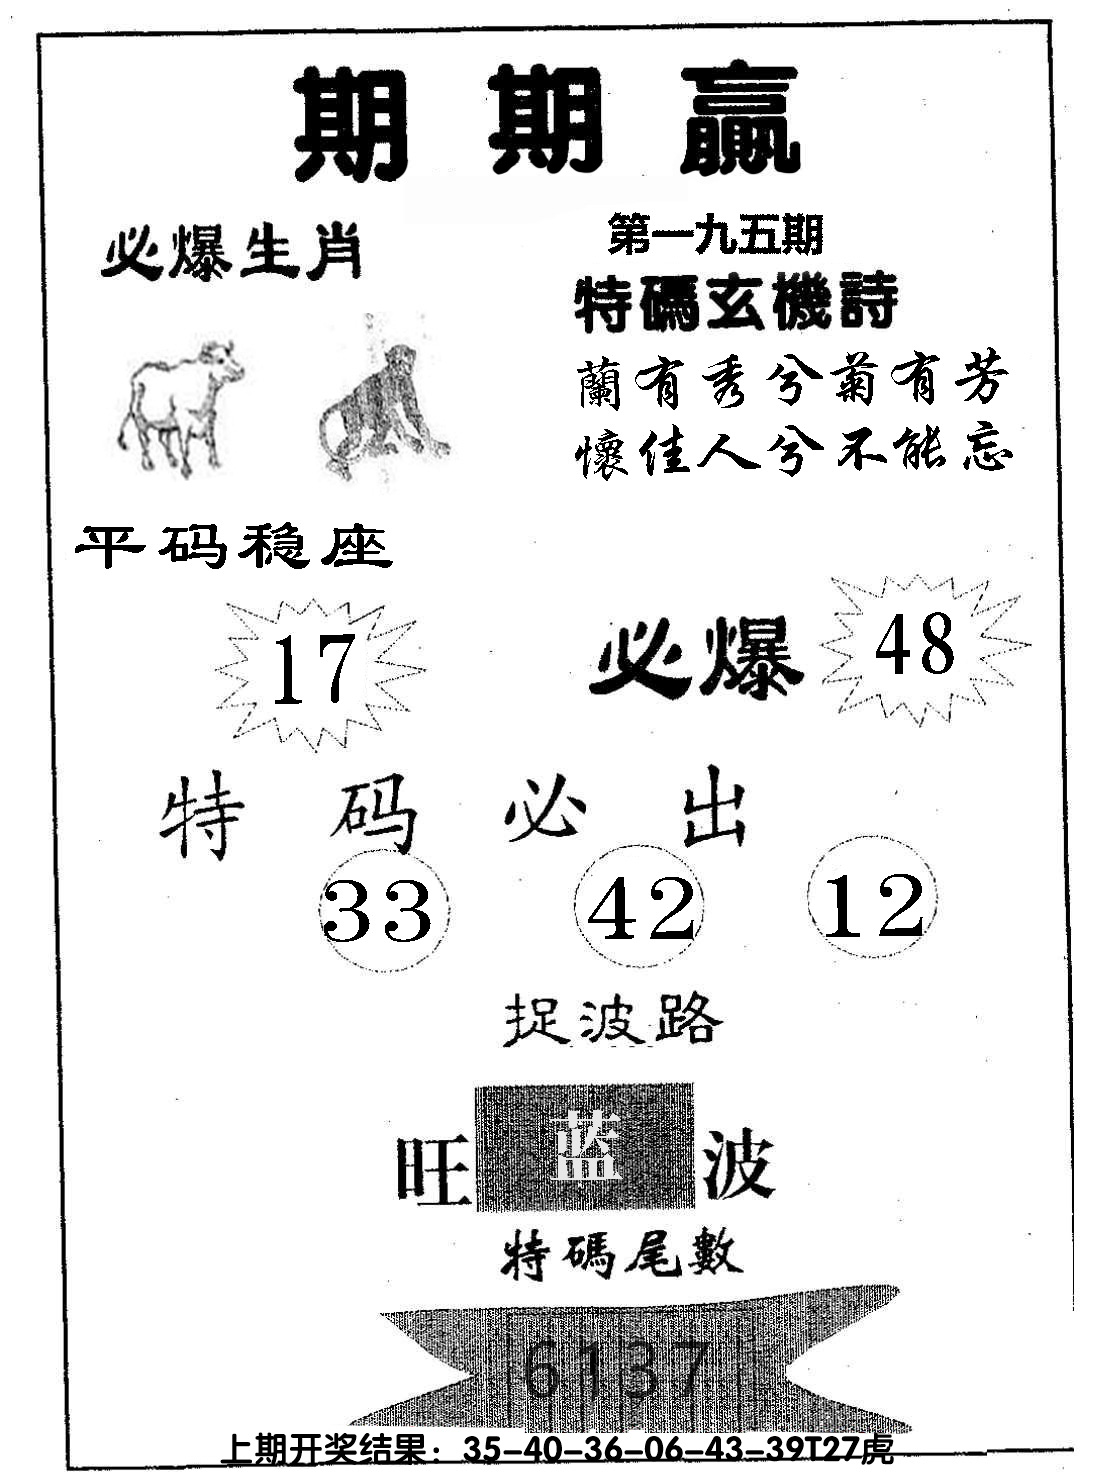 期期贏
必爆生肖
第一九五期
特碼玄機詩
蘭有秀兮菊有芳
懷佳人兮不能忘
平码稳座
17
必爆 48
特码必出
33 42 12
捉波路
旺 蓝 波
特碼尾數
6137
上期开奖结果：35-40-36-06-43-39T27虎